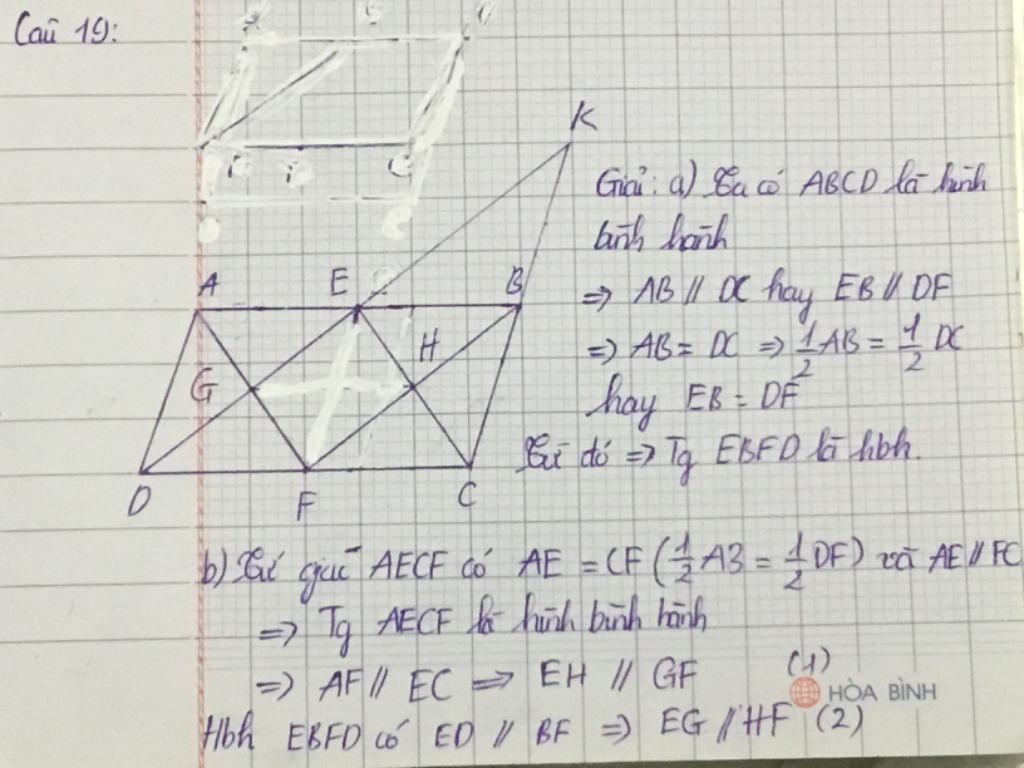 Câu 19:
K
Giải: a) Ta có ABCD là hình
bình hành
A E B
=> AB // DC hay EB // DF
H
=> AB = DC => 1/2 AB = 1/2 DC
G
hay EB = DF
Từ đó => Tg EBFD là hbh.
D F C
b) Tứ giác AECF có AE = CF (1/2 AB = 1/2 DF) và AE // FC
=> Tg AECF là hình bình hành
=> AF // EC => EH // GF (1)
HÒA BÌNH
Hbh EBFD có ED // BF => EG // HF (2)